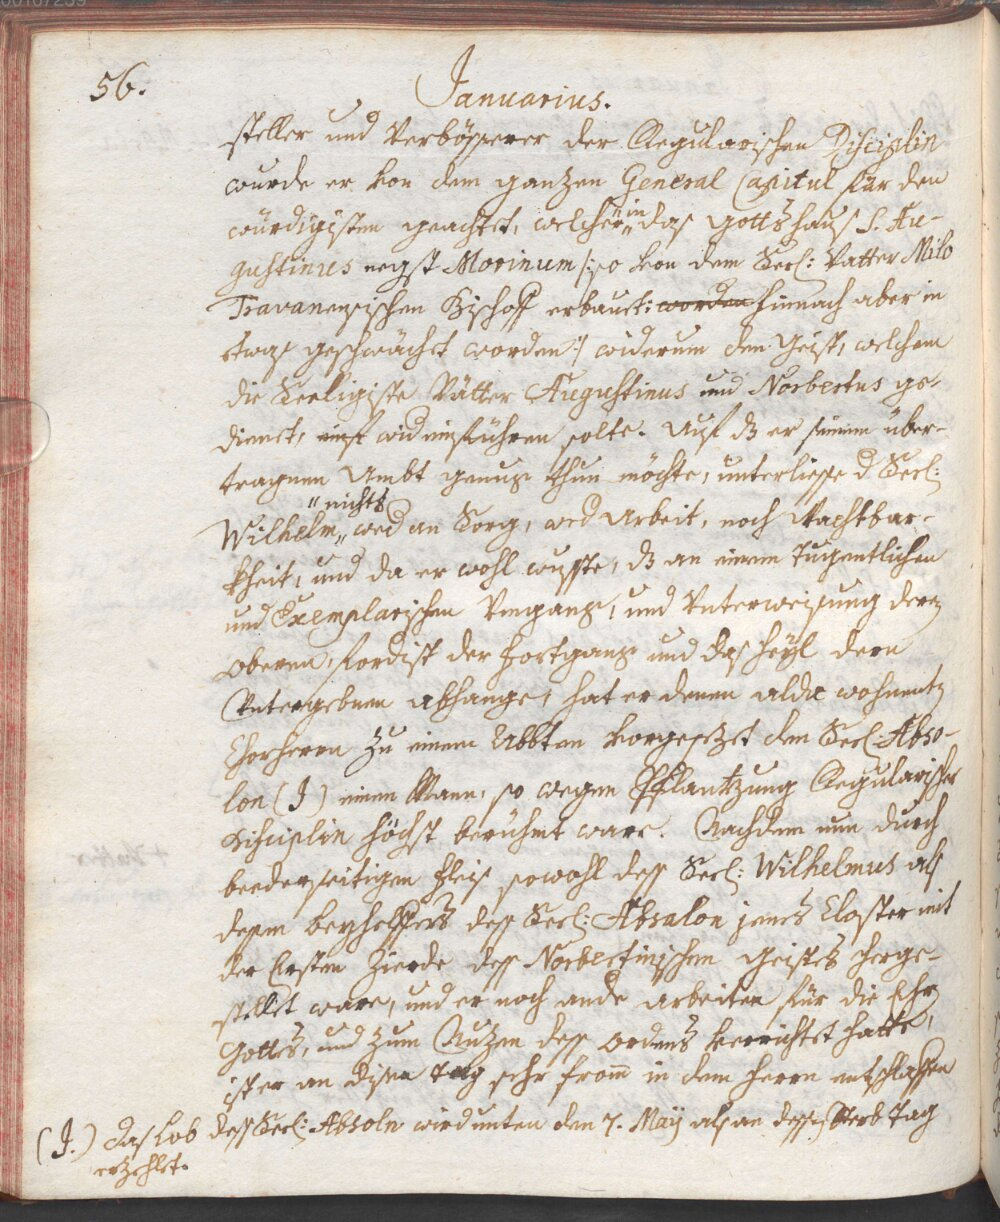 56.
Januarius.
steller und Verbösserer der Regularischen Disciplin
wurde er von dem ganzen General Capitul für den
würdigisten geachtet, welcher in das Gottshaus S. Au-
gustinus negst Morinum /: so von dem Seel: Vatter Milo
Bischoff erbaut: worden hinnach aber in
etwas geschwächet worden :/ widerum den Geist, welchem
die Heeligiste Vätter Augustinus und Norbertus ge-
dienet, einführen solte. Auf dß er seinem über-
tragnen Ambt genug thun möchte, unterliesse d. Seel:
Wilhelm „ nichts „ wed an Sorg, wed Arbeit, noch Wachtbar-
kheit, und da er wohl wusste, dß an einem Tugentlichen
und Exemplarischen Umgang, und Unterweisung deren
Oberen, fordist der Fortgang und das Heyl deren
Untergebnen abhange, hat er denen alda wohnenten
Chorherrn zu einem Abbten vorgesezet den Seel: Abso-
lon (I) einen Mann, so wegen Pflantzung Regularischer
Disciplin höchst berühmt ware. Nachdem nun durch
beederseitigen Fleis sowohl dess Seel: Wilhelmus als
dessen beyhelffers dess Seel: Absalon jenes Closter mit
der Ersten Zierde dess Norbertinischen Geistes herge-
stellet ware, und er noch andere arbeiten für die Ehr
Gottes, und zum Nutzen dess Ordens verrichtet hatte,
ist er an disen Tag sehr from̄ in dem Herrn entschlaffen
(I.) das Lob dess Seel: Absoln wird unten den 7. May als an dessen Sterb Tag
erzehlet.